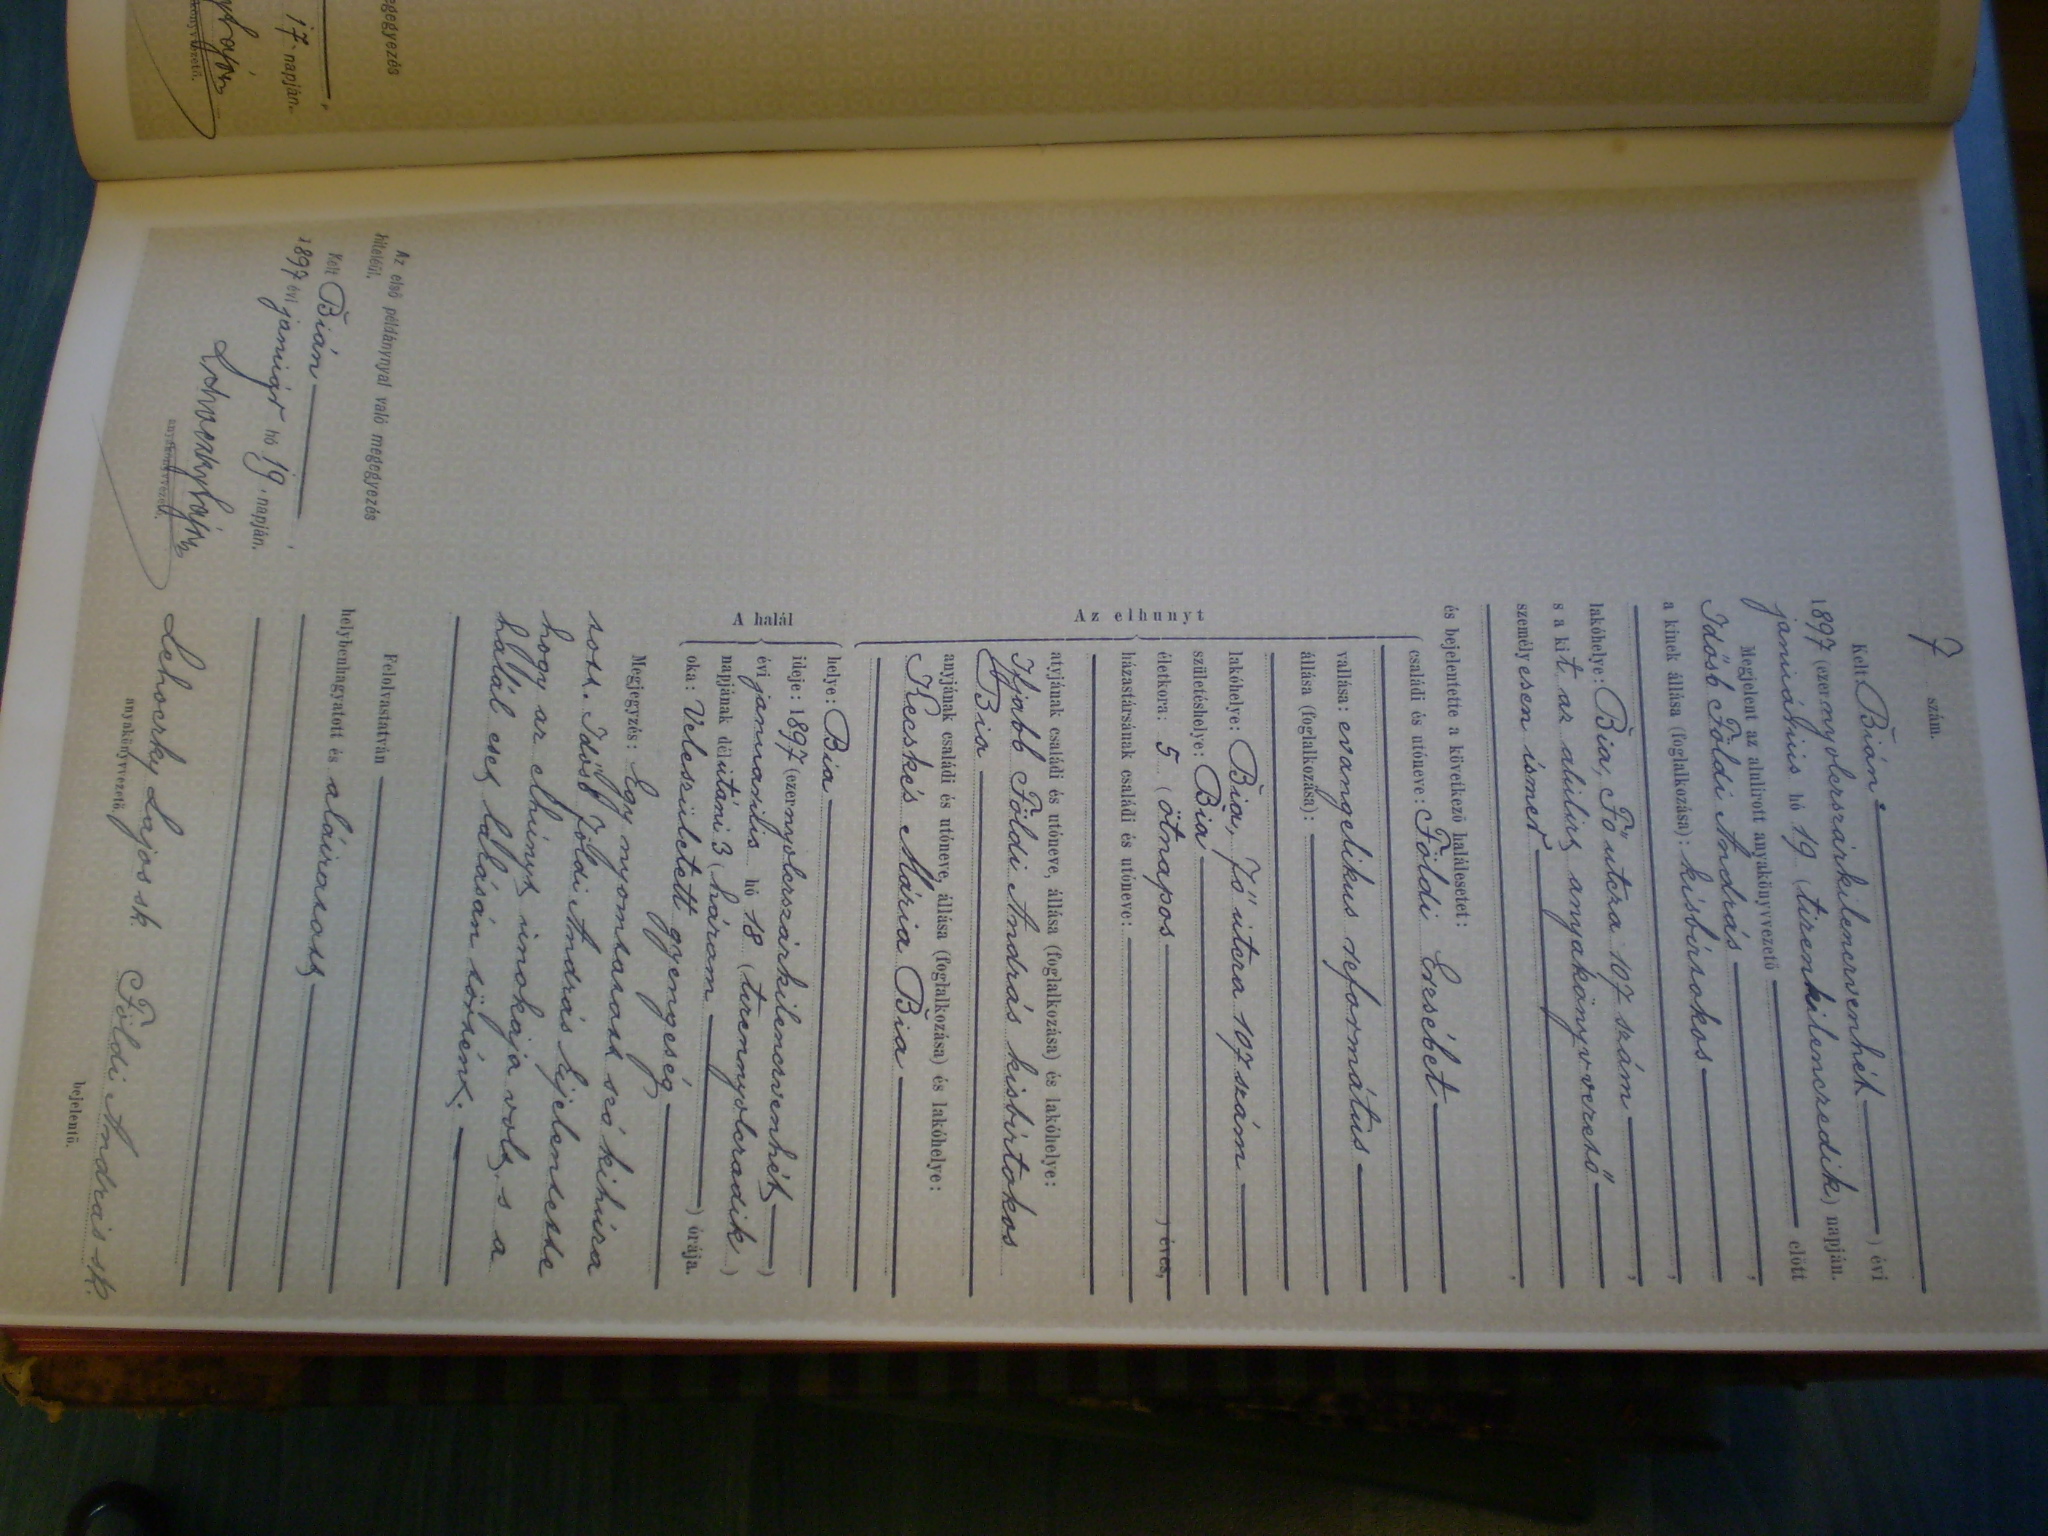 7 szám.
Kelt Bián, 1897 (ezernyolczszázkilenczvenhét) évi
januárius hó 19 (tizenkilenczedik) napján.
Megjelent az alulirott anyakönyvvezető előtt
Idősb Földi András,
a kinek állása (foglalkozása): kisbirtokos,
lakóhelye: Bia, Fő utcza 107 szám,
s a kit az alulirt anyakönyvvezető
személyesen ismer,
és bejelentette a következő halálesetet:
családi és utóneve: Földi Erzsébet
vallása: evangelikus református
állása (foglalkozása):
lakóhelye: Bia, Fő utcza 107 szám
születéshelye: Bia
életkora: 5 (ötnapos) éves,
házastársának családi és utóneve:
Az elhunyt
atyjának családi és utóneve, állása (foglalkozása) és lakóhelye:
Ifjabb Földi András kisbirtokos
Bia
anyjának családi és utóneve, állása (foglalkozása) és lakóhelye:
Kecskés Mária Bia
A halál
helye: Bia
ideje: 1897 (ezernyolczszázkilenczvenhét)
évi januárius hó 18 (tizennyolczadik)
napjának délutáni 3 (három) órája.
oka: Veleszületett gyengeség
Megjegyzés: Egy nyomtatott szó kihúzatott. Idősb Földi András kijelentette
hogy az elhúnyt unokája volt, s a
halál eset látásán történt.
Felolvastatván
helybenhagyatott és aláiratott
Lehoczky Lajos sk. Földi András sk.
anyakönyvvezető. bejelentő.
Az első példánynyal való megegyezés
hiteléül.
Kelt Bián
1897 évi január hó 19. napján.
Lehoczky Lajos
anyakönyvvezető.
egegyezés
17. napján.
könyvvezető.